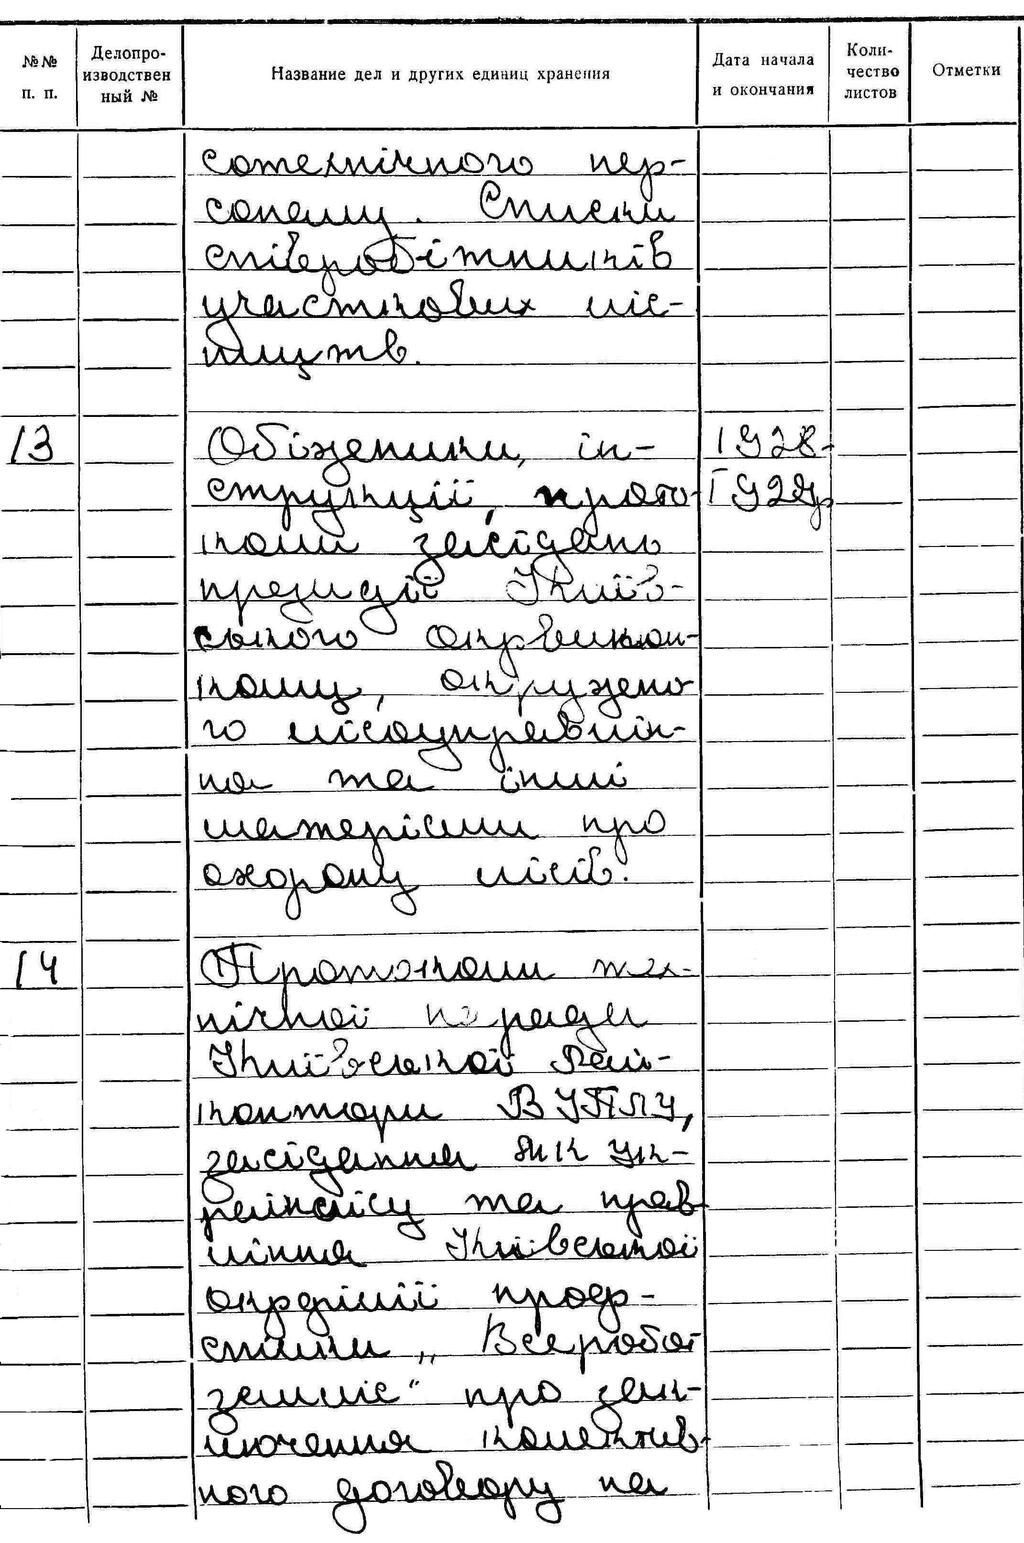 №№ п. п.
Делопро-
изводствен
ный №
Название дел и других единиц хранения
Дата начала
и окончания
Коли-
чество
листов
Отметки
сотехнічного пер-
соналу. Списки
співробітників
участкових ліс-
ництв.
13 Обіжники, ін- 1928-
струкції, прото- 1929р.
коли засідань
президії Київ-
ського окрвикон-
кому, окружно-
го лісоуправлін-
ня та інші
матеріали про
охорону лісів.
14 Протоколи тех-
нічної наради
Київської Рай-
контори ВУПЛУ,
засідання
та прав
ління Київської
окрфілії проф-
спілки „Всеробот
земліс" про зак-
лючення колектив-
ного договору на